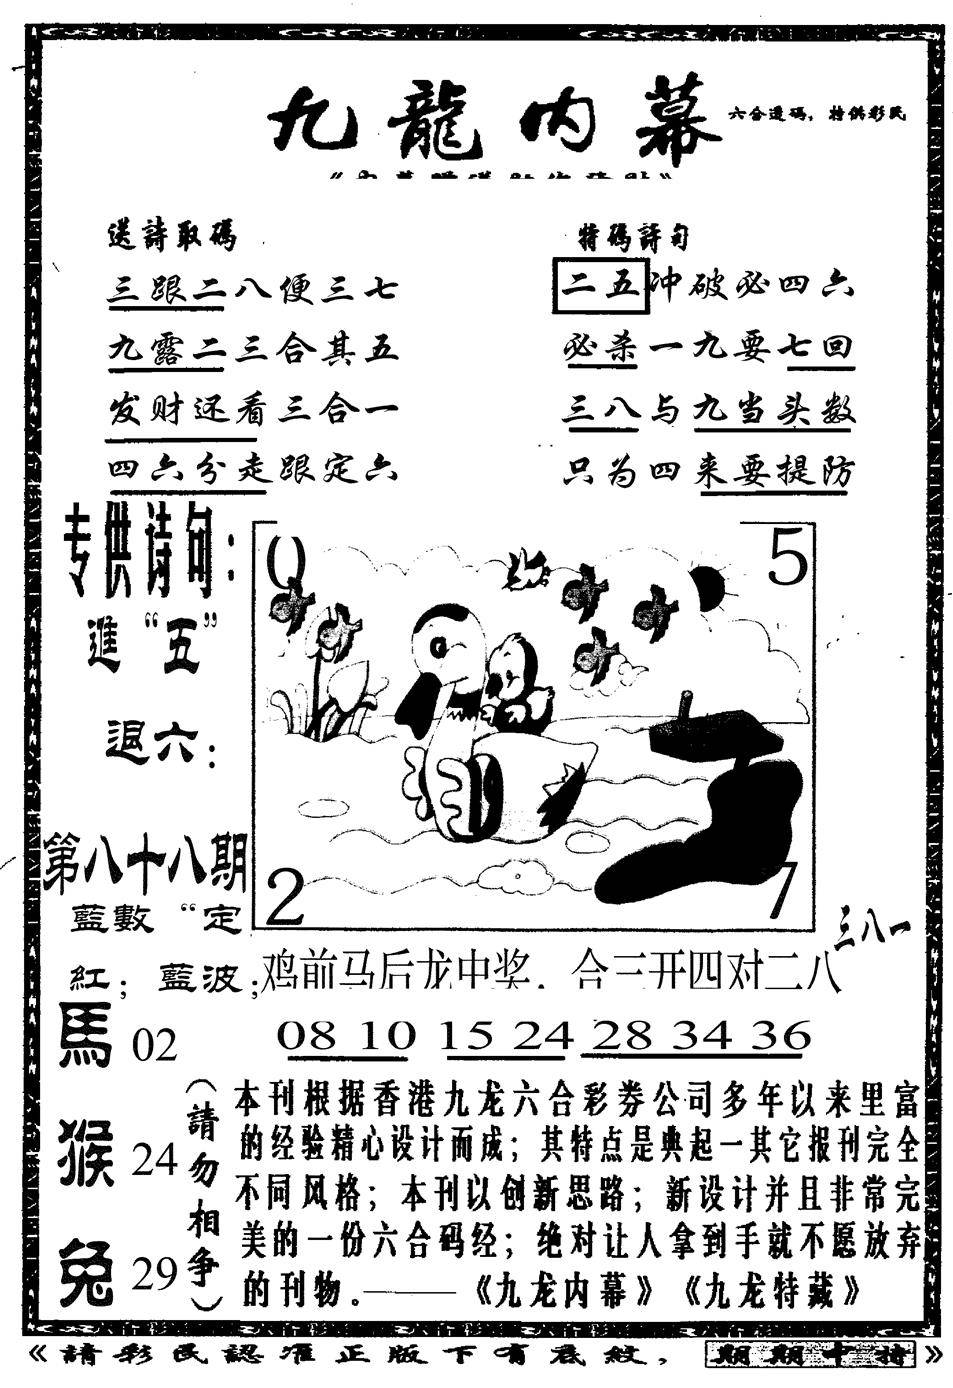 九龍内幕
六合透碼，特供彩民
送詩取碼
三跟二八便三七
九露二三合其五
发财还看三合一
四六分走跟定六
特碼詩句
二五冲破必四六
必杀一九要七回
三八与九当头数
只为四来要提防
专供诗句：
進“五”
退六：
第八十八期
藍數“定
紅；藍波；
馬 02
猴 24
兔 29
（請勿相争）
0
5
2
7
三八一
鸡前马后龙中奖．合三开四对二八
08 10 15 24 28 34 36
本刊根据香港九龙六合彩券公司多年以来里富
的经验精心设计而成；其特点是典起一其它报刊完全
不同风格；本刊以创新思路；新设计并且非常完
美的一份六合码经；绝对让人拿到手就不愿放弃
的刊物．———《九龙内幕》《九龙特藏》
《請彩民認准正版下有底紋，期期中特》